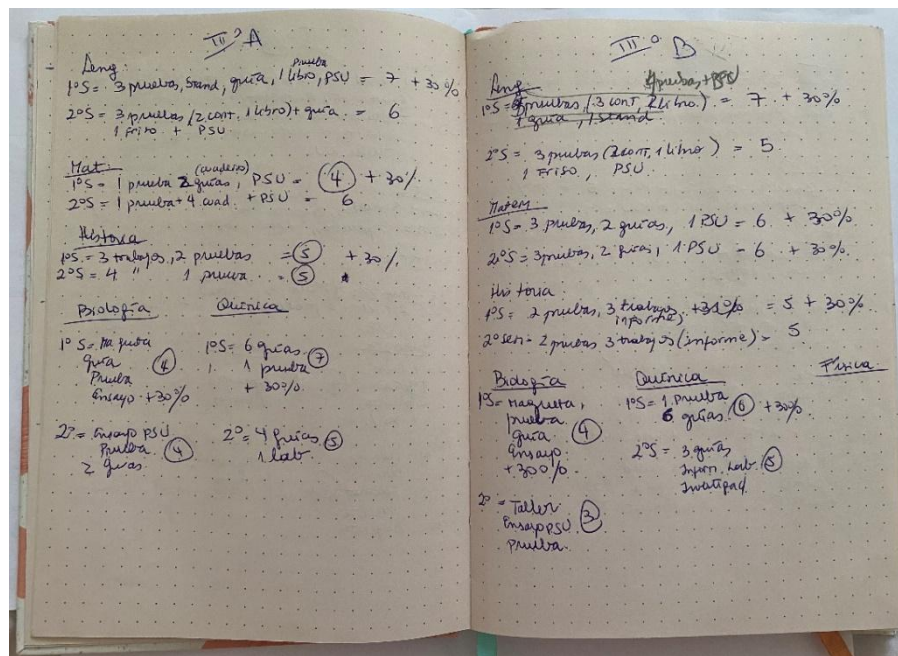 III° A
Leng.
Prueba
1°S = 3 pruebas, Stand, guía, 1 libro, PSU = 7 + 30%
2°S = 3 pruebas (2 cont, 1 libro) + guía = 6
1 Friso + PSU
Mat:
(cuaderno)
1°S = 1 prueba 2 guías, PSU = 4 + 30%
2°S = 1 prueba + 4 cuad. + PSU = 6
Historia
1°S = 3 trabajos, 2 pruebas = 5 + 30%
2°S = 4 " 1 prueba = 5
Biología
1°S = Maqueta
guía 4
Prueba
Ensayo + 30%
2° = Ensayo PSU
Prueba 4
2 guías
Química
1°S = 6 guías 7
1 prueba
+ 30%
2° = 4 guías 5
1 Lab.
III° B
Leng
4 pruebas + PSU
1°S = pruebas, (3 cont, 2 libro.) = 7 + 30%
1 guía, 1 Stand
2°S = 3 pruebas (2 cont, 1 libro) = 5
1 Friso, PSU
Matem
1°S = 3 pruebas, 2 guías, 1 PSU = 6 + 30%
2°S = 3 pruebas, 2 guías, 1 PSU = 6 + 30%
Historia
1°S = 2 pruebas, 3 trabajos + 30% = 5 + 30%
(informe)
2° Sem = 2 pruebas 3 trabajos (informe) = 5
Biología
1°S = Maqueta,
prueba
guía 4
Ensayo
+ 30%
2° = Taller
Ensayo PSU 3
Prueba
Química
1°S = 1 Prueba
6 guías 6 + 30%
2°S = 3 guías
Inform. Lab. 5
Física